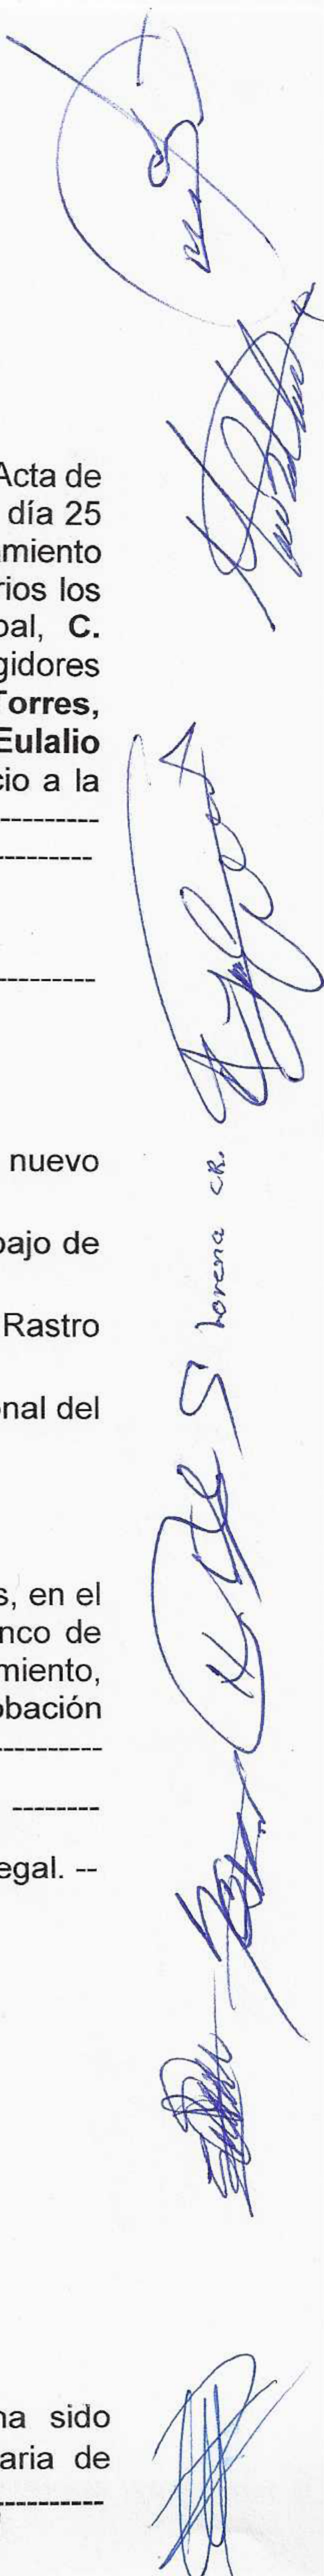 Acta de
día 25
miento
rios los
pal, C.
gidores
Torres,
Eulalio
cio a la
---------
---------
---------
nuevo
bajo de
Rastro
nal del
s, en el
nco de
miento,
obación
---------
--------
egal. --
na sido
aria de
---------
Lorena C.R.